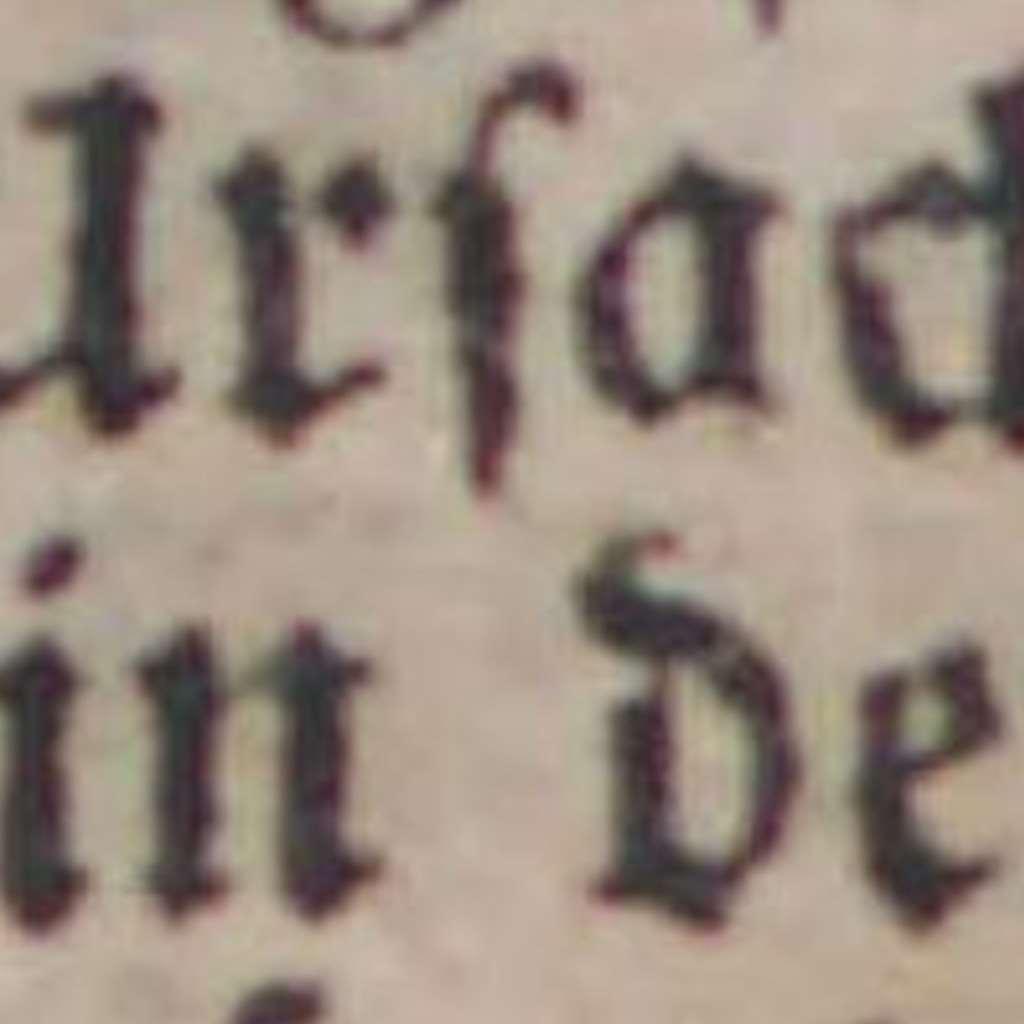 Urſach
in de